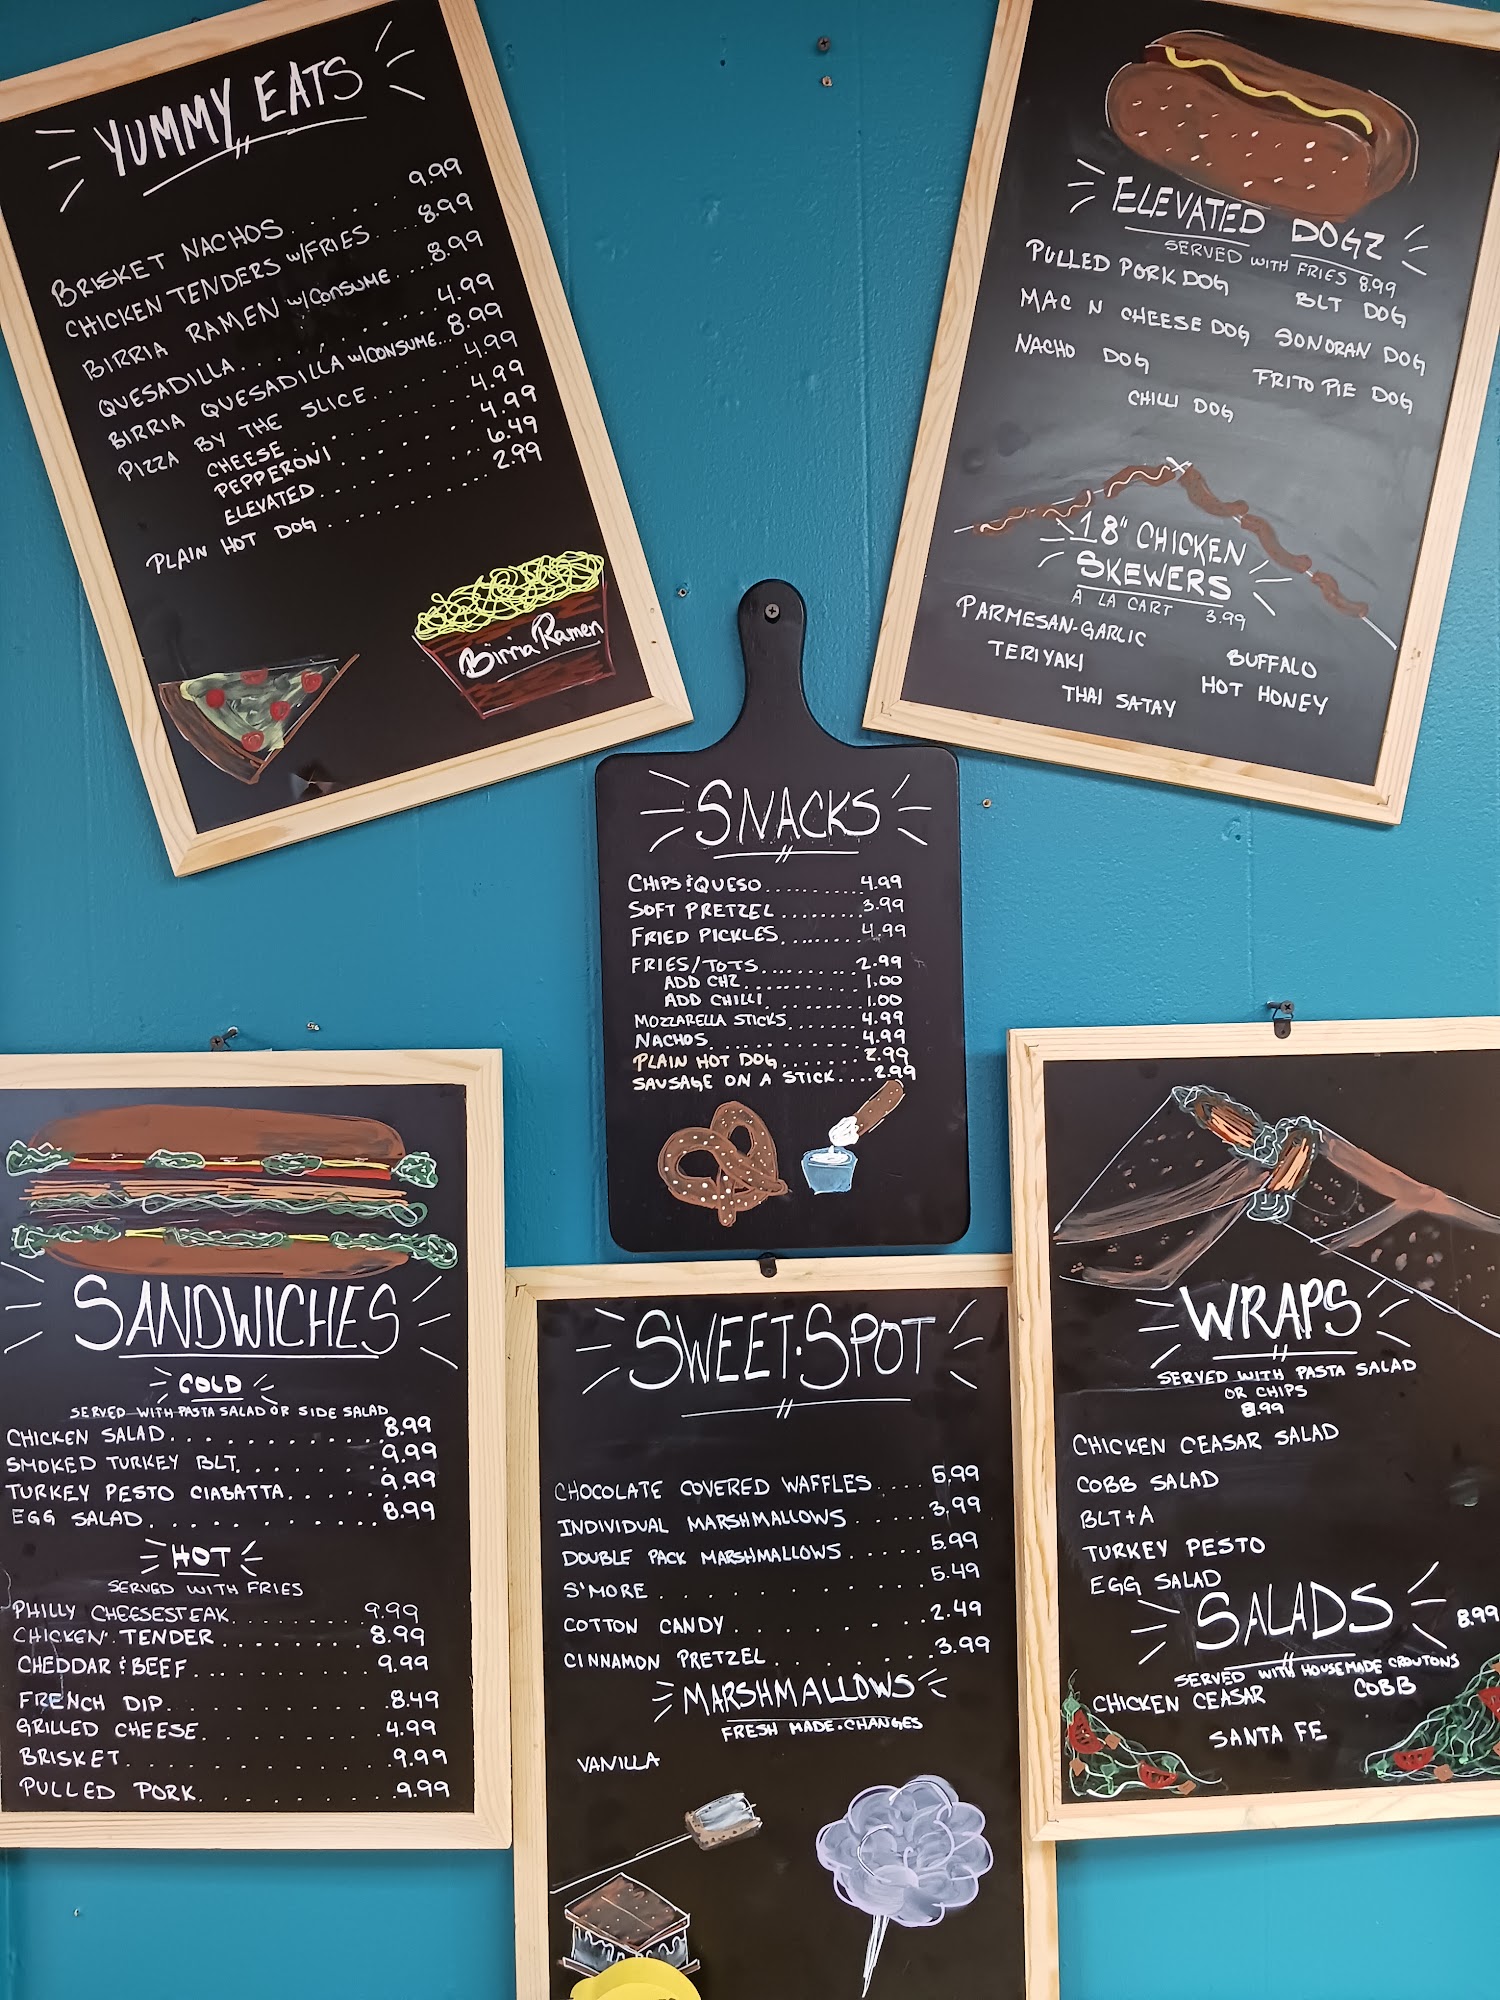 YUMMY EATS
BRISKET NACHOS...... 9.99
CHICKEN TENDERS w/FRIES.... 8.99
BIRRIA RAMEN w/CONSUME.... 8.99
QUESADILLA......... 4.99
BIRRIA QUESADILLA w/CONSUME... 8.99
PIZZA BY THE SLICE....... 4.99
CHEESE......... 4.99
PEPPERONI........ 4.99
ELEVATED......... 6.49
PLAIN HOT DOG......... 2.99
Birria Ramen
ELEVATED DOGZ
SERVED WITH FRIES 8.99
PULLED PORK DOG BLT DOG
MAC N CHEESE DOG SONORAN DOG
NACHO DOG FRITO PIE DOG
CHILLI DOG
18" CHICKEN
SKEWERS
A LA CART 3.99
PARMESAN-GARLIC
TERIYAKI BUFFALO
THAI SATAY HOT HONEY
SNACKS
CHIPS & QUESO........... 4.99
SOFT PRETZEL......... 3.99
FRIED PICKLES......... 4.99
FRIES/TOTS.......... 2.99
ADD CHZ........... 1.00
ADD CHILLI......... 1.00
MOZZARELLA STICKS....... 4.99
NACHOS............ 4.99
PLAIN HOT DOG....... 2.99
SAUSAGE ON A STICK.... 2.99
SANDWICHES
COLD
SERVED WITH PASTA SALAD OR SIDE SALAD
CHICKEN SALAD........... 8.99
SMOKED TURKEY BLT........ 9.99
TURKEY PESTO CIABATTA..... 9.99
EGG SALAD............ 8.99
HOT
SERVED WITH FRIES
PHILLY CHEESESTEAK........ 9.99
CHICKEN TENDER......... 8.99
CHEDDAR & BEEF.......... 9.99
FRENCH DIP........... 8.49
GRILLED CHEESE......... 4.99
BRISKET............. 9.99
PULLED PORK......... 9.99
SWEET·SPOT
CHOCOLATE COVERED WAFFLES.... 5.99
INDIVIDUAL MARSHMALLOWS..... 3.99
DOUBLE PACK MARSHMALLOWS..... 5.99
S'MORE......... 5.49
COTTON CANDY......... 2.49
CINNAMON PRETZEL........ 3.99
MARSHMALLOWS
FRESH MADE·CHANGES
VANILLA
WRAPS
SERVED WITH PASTA SALAD
OR CHIPS
8.99
CHICKEN CEASAR SALAD
COBB SALAD
BLT+A
TURKEY PESTO
EGG SALAD
SALADS 8.99
SERVED WITH HOUSEMADE CROUTONS
CHICKEN CEASAR COBB
SANTA FE